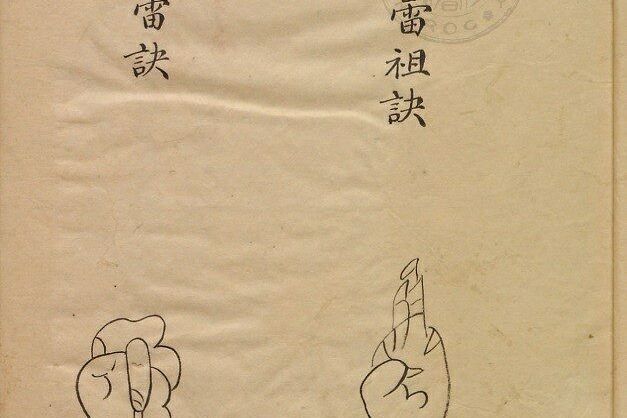 雷祖訣
雷訣